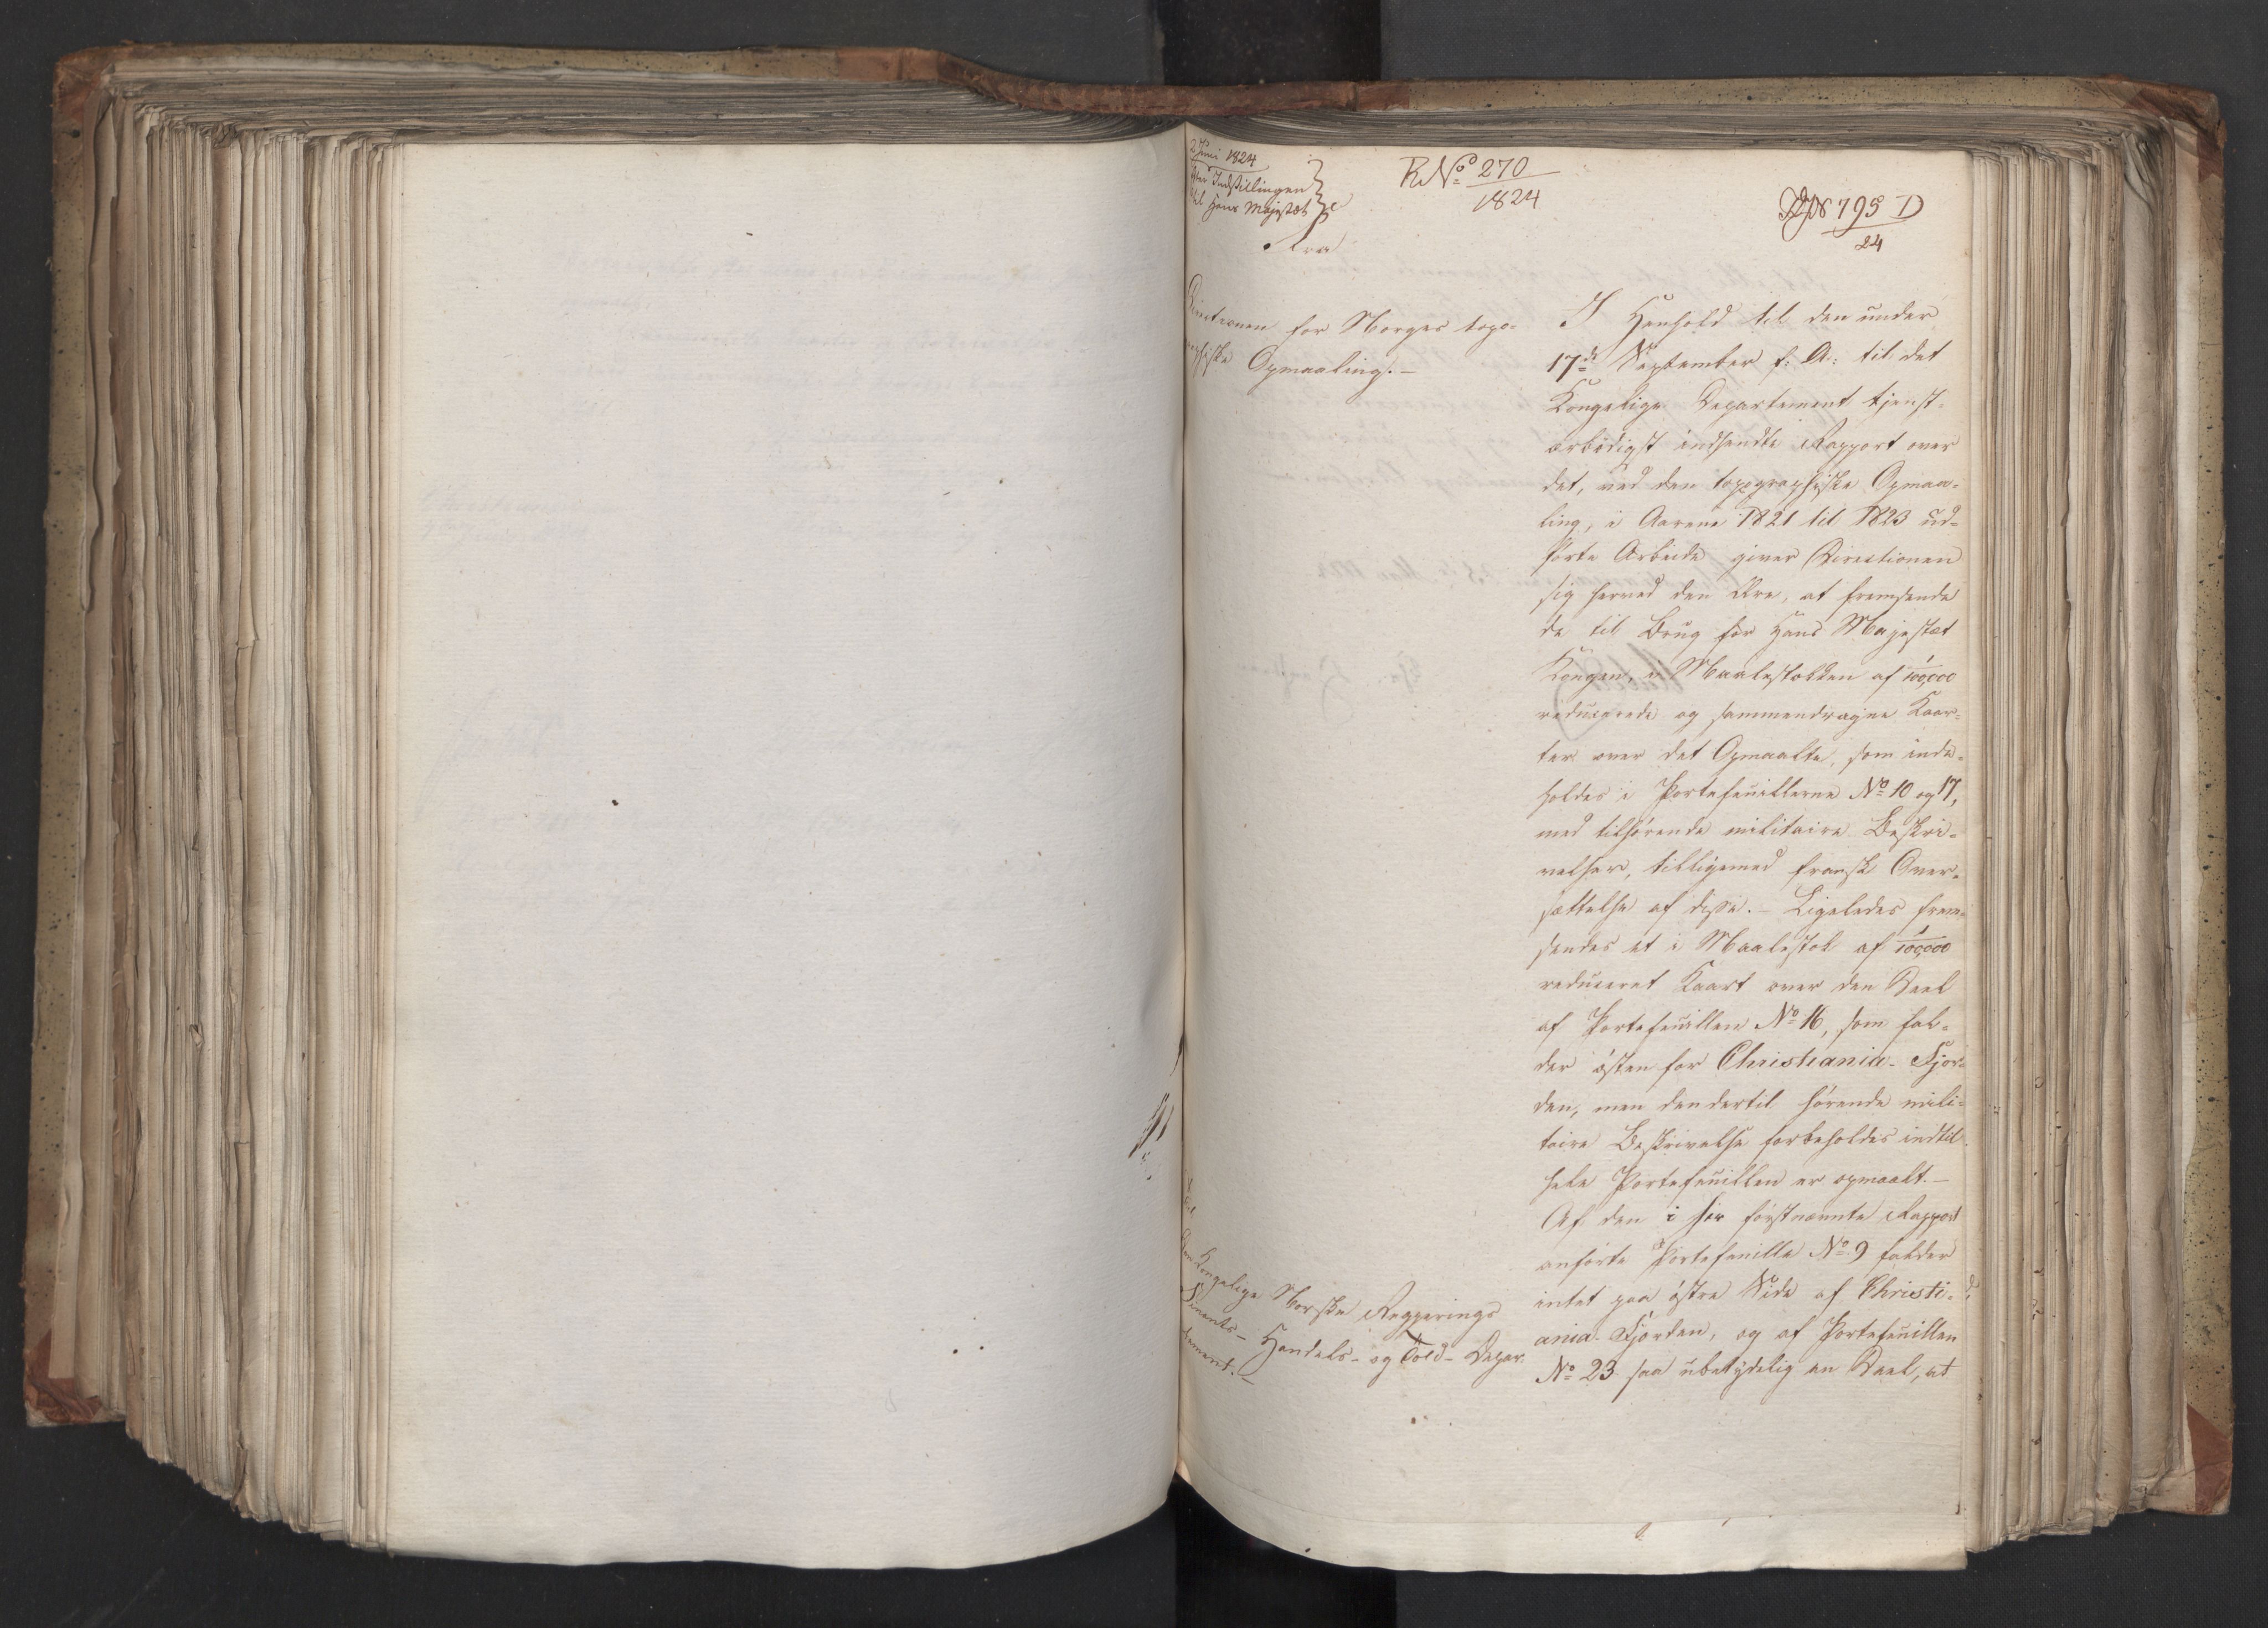 2 Juni 1824
Indstillingen
til Hans Majestæt
R No 270
1824
795 D
24
Fra
Directionen for Norges topo-
graphiske Opmaaling.-
I Henhold til den under
17de September f: A: til det
Kongelige Departement tjenst-
ærbødigst indsendte Rapport over
det, ved den topographiske Opmaa-
ling, i Aarene 1821 til 1823 ud-
førte Arbeide giver Directionen
sig herved den Ære, at fremsende
de til Brug for Hans Majestæt
Kongen, i Maalestokken af 1/100,000
reducerede og sammendragne Kaar-
ter over det Opmaalte, som inde-
holdes i Portefeuillerne No 10 og 17,
med tilhørende militaire Beskri-
velser, tilligemed fransk Over-
sættelse af disse. - Ligeledes frem-
sendes et i Maalestok af 1/100,000
reduceret Kaart over den Deel
af Portefeuillen No 16, som fal-
der østen for Christiania-Fjor-
den, men den dertil hørende mili-
taire Beskrivelse forbeholdes indtil
hele Portefeuillen er opmaalt. -
Af den i før førstnævnte Rapport
anførte Portefeuille No 9 falder
intet paa østre Side af Christi-
ania-Fjorden, og af Portefeuillen
No 23 saa ubetydelig en Deel, at
Til
Den Kongelige Norske Regjerings
Finants- Handels- og Told- Depar-
tement.-